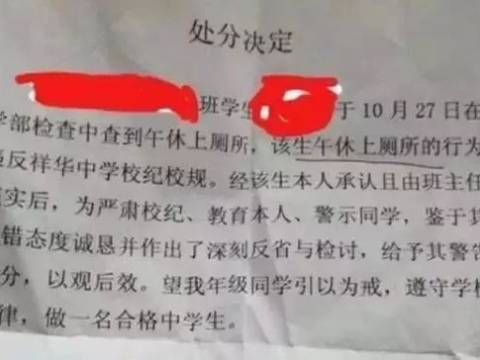 处分决定
班学生 于10月27日在
学部检查中查到午休上厕所,该生午休上厕所的行为
违反祥华中学校纪校规。经该生本人承认且由班主任
实后,为严肃校纪、教育本人、警示同学,鉴于其
错态度诚恳并作出了深刻反省与检讨,给予其警告
分,以观后效。望我年级同学引以为戒,遵守学校
律,做一名合格中学生。